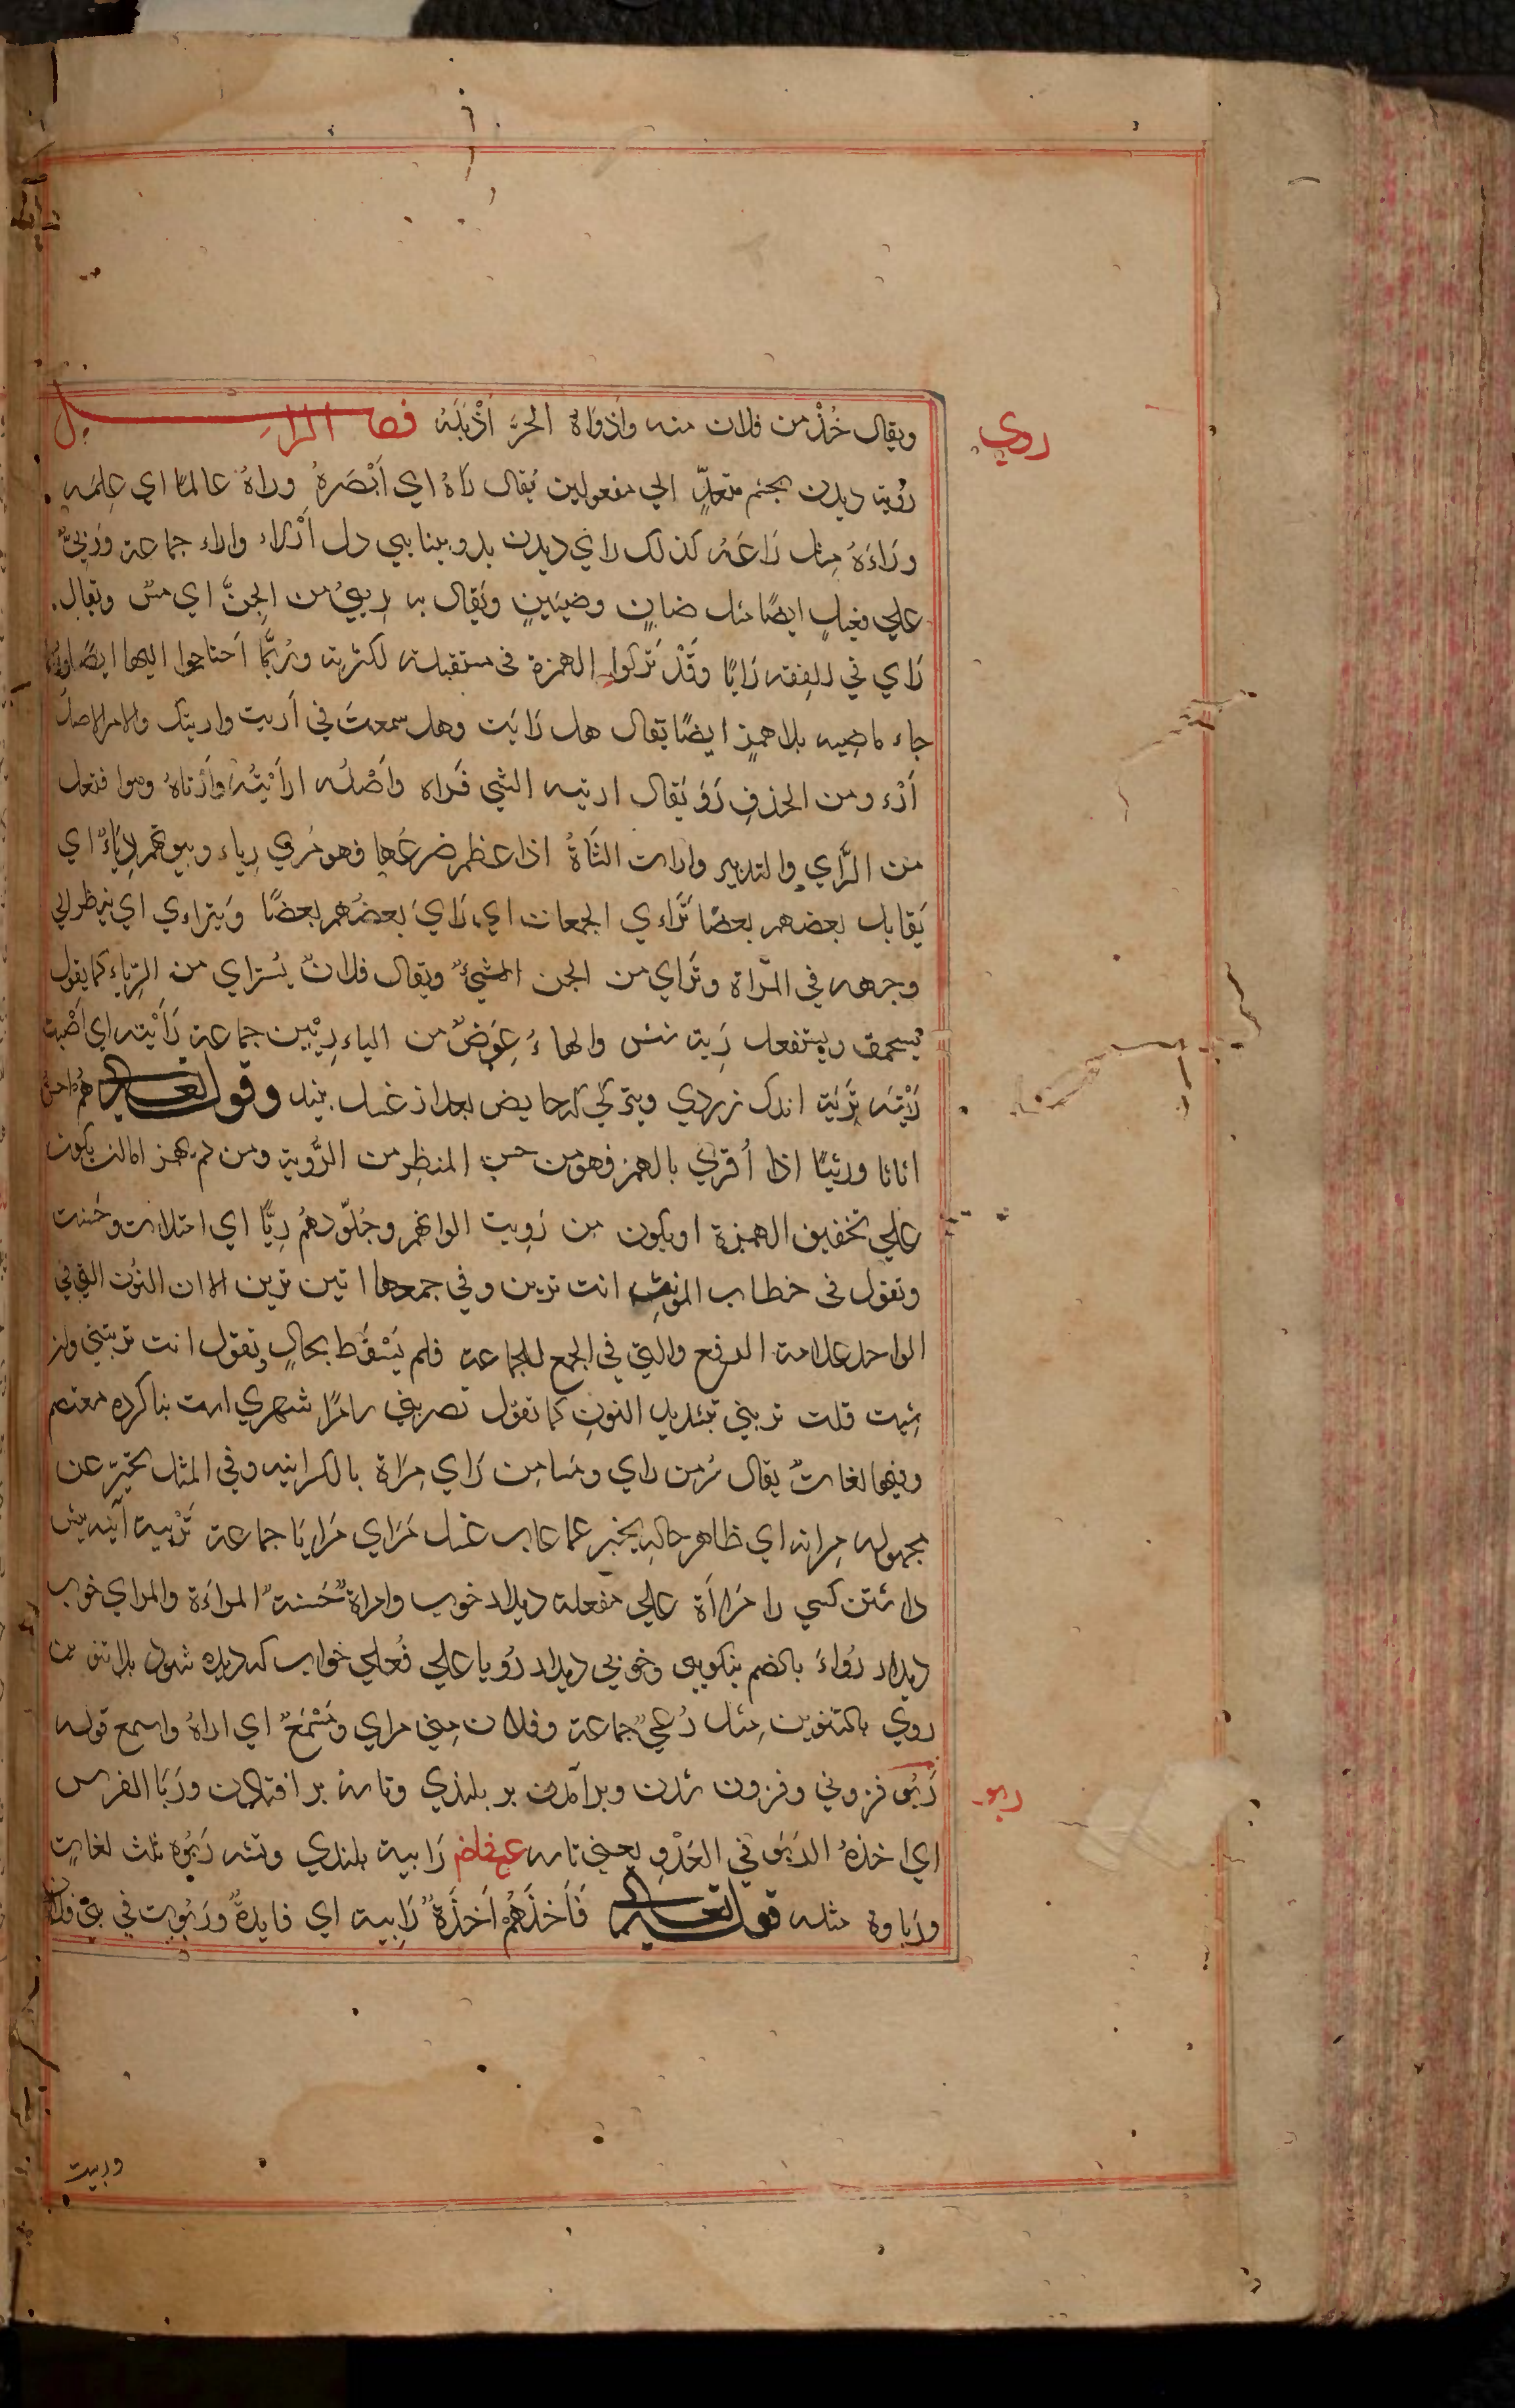 ويقال خُذْ من فلان منه وأذواهُ الحرّ أذبلَهُ فصل الراء
روي
رؤية ديدن بچشم متعدٍّ الي مفعولين يُقال رَاهُ اي أبْصَرهُ وراهُ عالمًا اي عِلمَه
ورَاءَهُ مثل رَاعَهُ كذلك راي ديدن بدو بينايي دل أرْاء واراء جماعة ورئيٌّ
علي فعيلٍ ايضًا مثل ضانٍ وضئينٍ ويُقال به رئيٌّ من الجنّ اي مسّ ويقال
رَاي في الفقه رَايًا وقَدْ تَركوا الهمزة في مستقبله لكثرته ورُبَّما احتاجوا اليها ايضًا
جاء ماضيه بلا همزٍ ايضًا يقال هل رَايَت وهل سمعتَ في أريت واريتك والامر الاصل
أرْء ومن الحذفِ رَوَ يَقال اريته الشي فَراه وأصْلُه ارأيْتُه وأرْتاهُ وهوا فتعل
من الرَّاي والتدبير وارات الشاةُ اذا عظم ضرعُها فهو مُروي رياء وبيوتهم رِيَاءٌ اي
يَقابل بعضهم بعضًا تَراءي الجمعان اي رَايَ بعضُهم بعضًا ويَتراءي اي ينظر الي
وجهه في المرآة وتَراي من الجن الشيءُ ويقال فلانٌ يُستراي من الرياء كما يقول
يُستحمق ويستفعل رِية شش والهاءُ عِوَضٌ من الياء رِئِين جماعة رَأيْته اي أصبت
رِيْتَه تَرِيَة اندك زردي وتيرگي كه حايض بعد از غسل بيند وقوله تعالي هُم احسن
اثاثا ورئيًا اذا أُقري بالهمز فهو من حسن المنظر من الرُّوية ومن لم يهمز اما ان يكون
علي تخفيف الهمزة او يكون من رَوِيت الوانهم وجُلُودهُم رِيًّا اي امتلات وحَسنت
وتقول في خطاب المونث انت ترين وفي جمعها انتن ترين الا ان النُون التي في
الواحد علامة الرفع والتي في الجمع للجماعة فلم يَسْقُط بحالٍ وتقول انت تريني وان
شيت قلت تريني بتشديد النونِ كما تقول تضربني سامَرّا شهري است بنا كرده معتصم
وفيها لغاتٌ يقال سُرمن راي وسامن رَاي مِرَاة بالكرآينه وفي المثل يخبر عن
مجهوله مِراته اي ظاهر حاله يخبر عما غاب عنك مَرَاي مَرايَا جماعة تَرئية آينه پيش
داشتن كسي را مَرْاَة علي مفعلة ديدار خوب وامراة حَسنة المراءَة والمراي خوب
ديدار رُواءَ بالضم نيكويي وخوبي ديدار رُويا علي فُعلي خواب كه ديده شود بلا تنوين
روي بالتنوين مِثل رُعيً جماعة وفلان مِني مراي ومَسْمَعٌ اي اراهُ واسمع قوله
ربو
رَبْو فزوني وفزون شدن وبرآمدن بر بلندي وتاسه بر افتادن ورَبَا الفرس
اي اخذهُ الربْو في العَدْوِ يعني تاسه رَابية بلندي ومثله رَبْوه ثلث لغاتٍ
ورَباوة مثله قوله تعالي فَأَخذَهُم أخذَةً رَابِية اي زايدةً ورَبُوت في بني فلان
وربيت